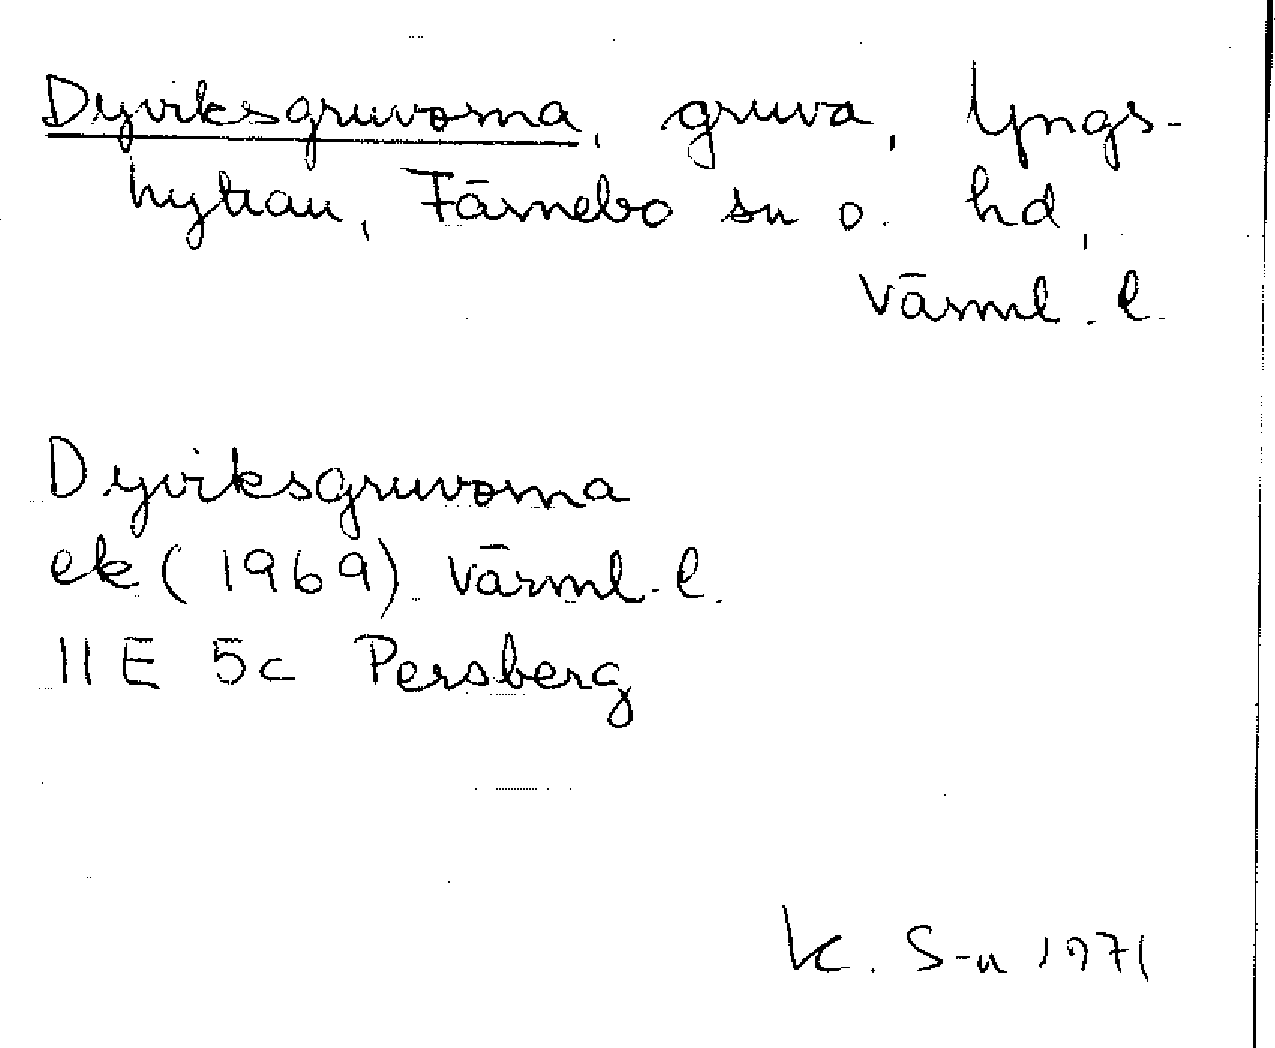 Dyviksgruvorna, gruva, Yngs-
hyttan, Färnebo sn o. hd,
Värml. l.
Dyviksgruvorna
ek (1969) Värml. l.
11E 5c Persberg
K. S-n 1971